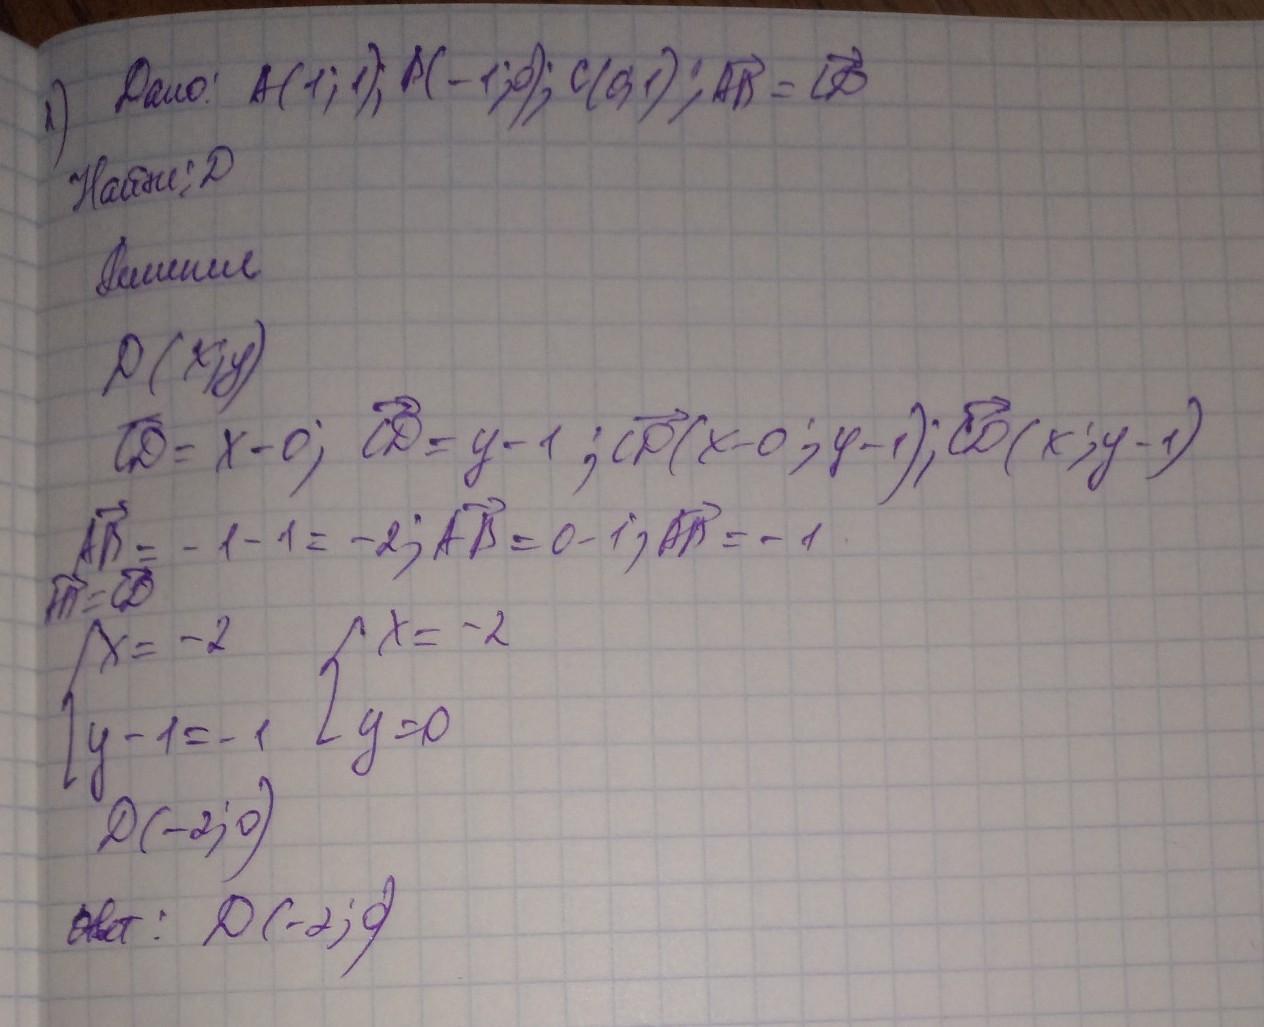 1) Дано: A(1;1); B(-1;0); C(0;1); AB = CD
Найти: D
Решение
D(x;y)
CD = x-0; CD = y-1; CD(x-0; y-1); CD(x; y-1)
AB = -1-1 = -2; AB = 0-1; AB = -1
AB = CD
{ x = -2 { x = -2
y-1 = -1 y = 0
D(-2;0)
Ответ: D(-2;0)